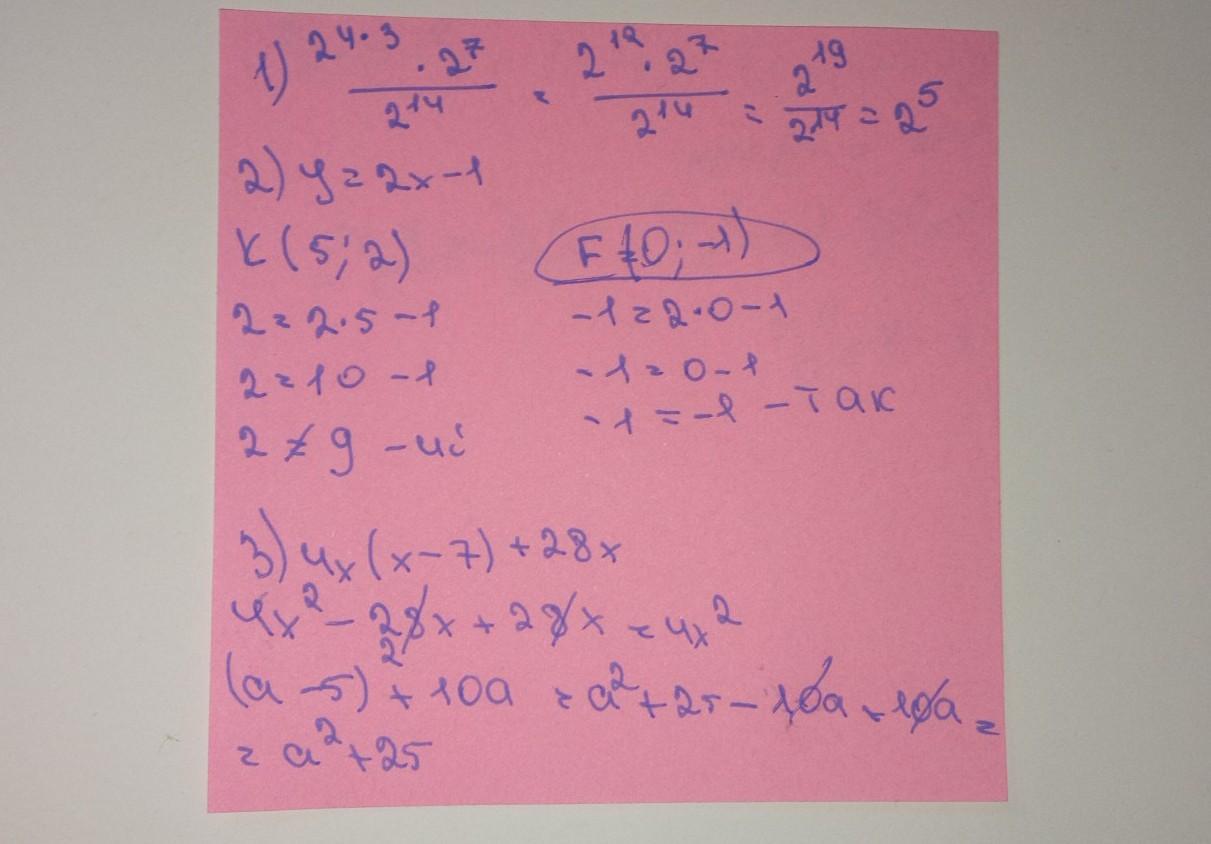 1) 2^{4·3} · 2^7 / 2^{14} = 2^{12} · 2^7 / 2^{14} = 2^{19} / 2^{14} = 2^5
2) y = 2x - 1
K (5; 2) F (0; -1)
2 = 2·5 - 1 -1 = 2·0 - 1
2 = 10 - 1 -1 = 0 - 1
2 ≠ 9 - ні -1 = -1 - так
3) 4x (x - 7) + 28x
4x² - 28x + 28x = 4x²
(a - 5)² + 10a = a² + 25 - 10a + 10a =
= a² + 25